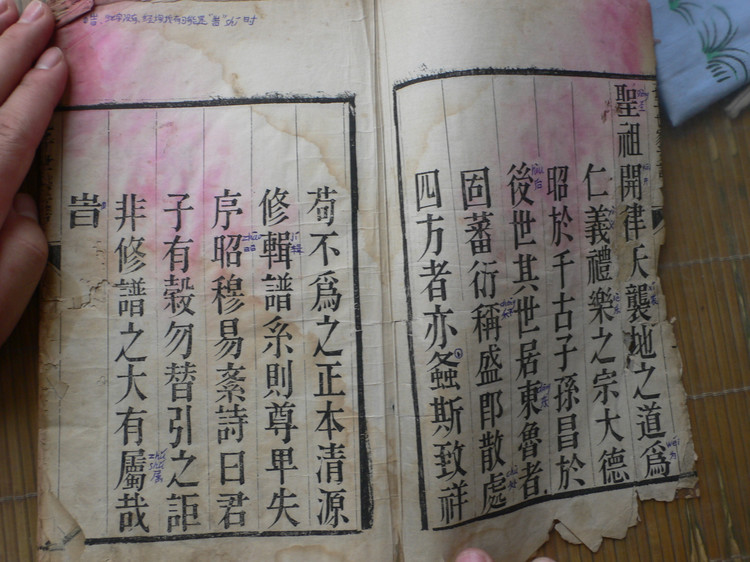 聖祖開律天襲地之道爲
仁義禮樂之宗大德
昭於千古子孫昌於
後世其世居東魯者
固蕃衍稱盛卽散處
四方者亦螽斯致祥
苟不爲之正本清源
修輯譜系則尊卑失
序昭穆易紊詩曰君
子有穀勿替引之詎
非修譜之大有屬哉
旹